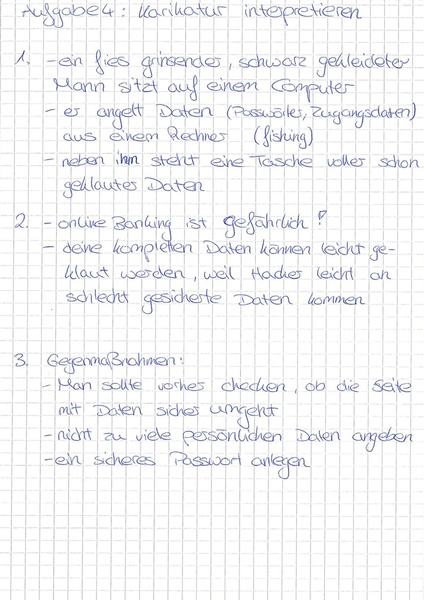 Aufgabe 4: Karikatur interpretieren
1. - ein fies grinsender, schwarz gekleideter
Mann sitzt auf einem Computer
- er angelt Daten (Passwörter, Zugangsdaten)
aus einem Rechner (fishing)
- neben ihm steht eine Tasche voller schon
geklauter Daten
2. - online Banking ist gefährlich!
- deine kompletten Daten können leicht ge-
klaut werden, weil Hacker leicht an
schlecht gesicherte Daten kommen
3. Gegenmaßnahmen:
- Man sollte vorher checken, ob die Seite
mit Daten sicher umgeht
- nicht zu viele persönlichen Daten angeben
- ein sicheres Passwort anlegen